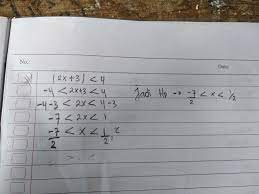 No:
Date:
|2x+3| < 4
-4 < 2x+3 < 4
-4-3 < 2x < 4-3
-7 < 2x < 1
-7/2 < x < 1/2
Jadi Hp → -7/2 < x < 1/2